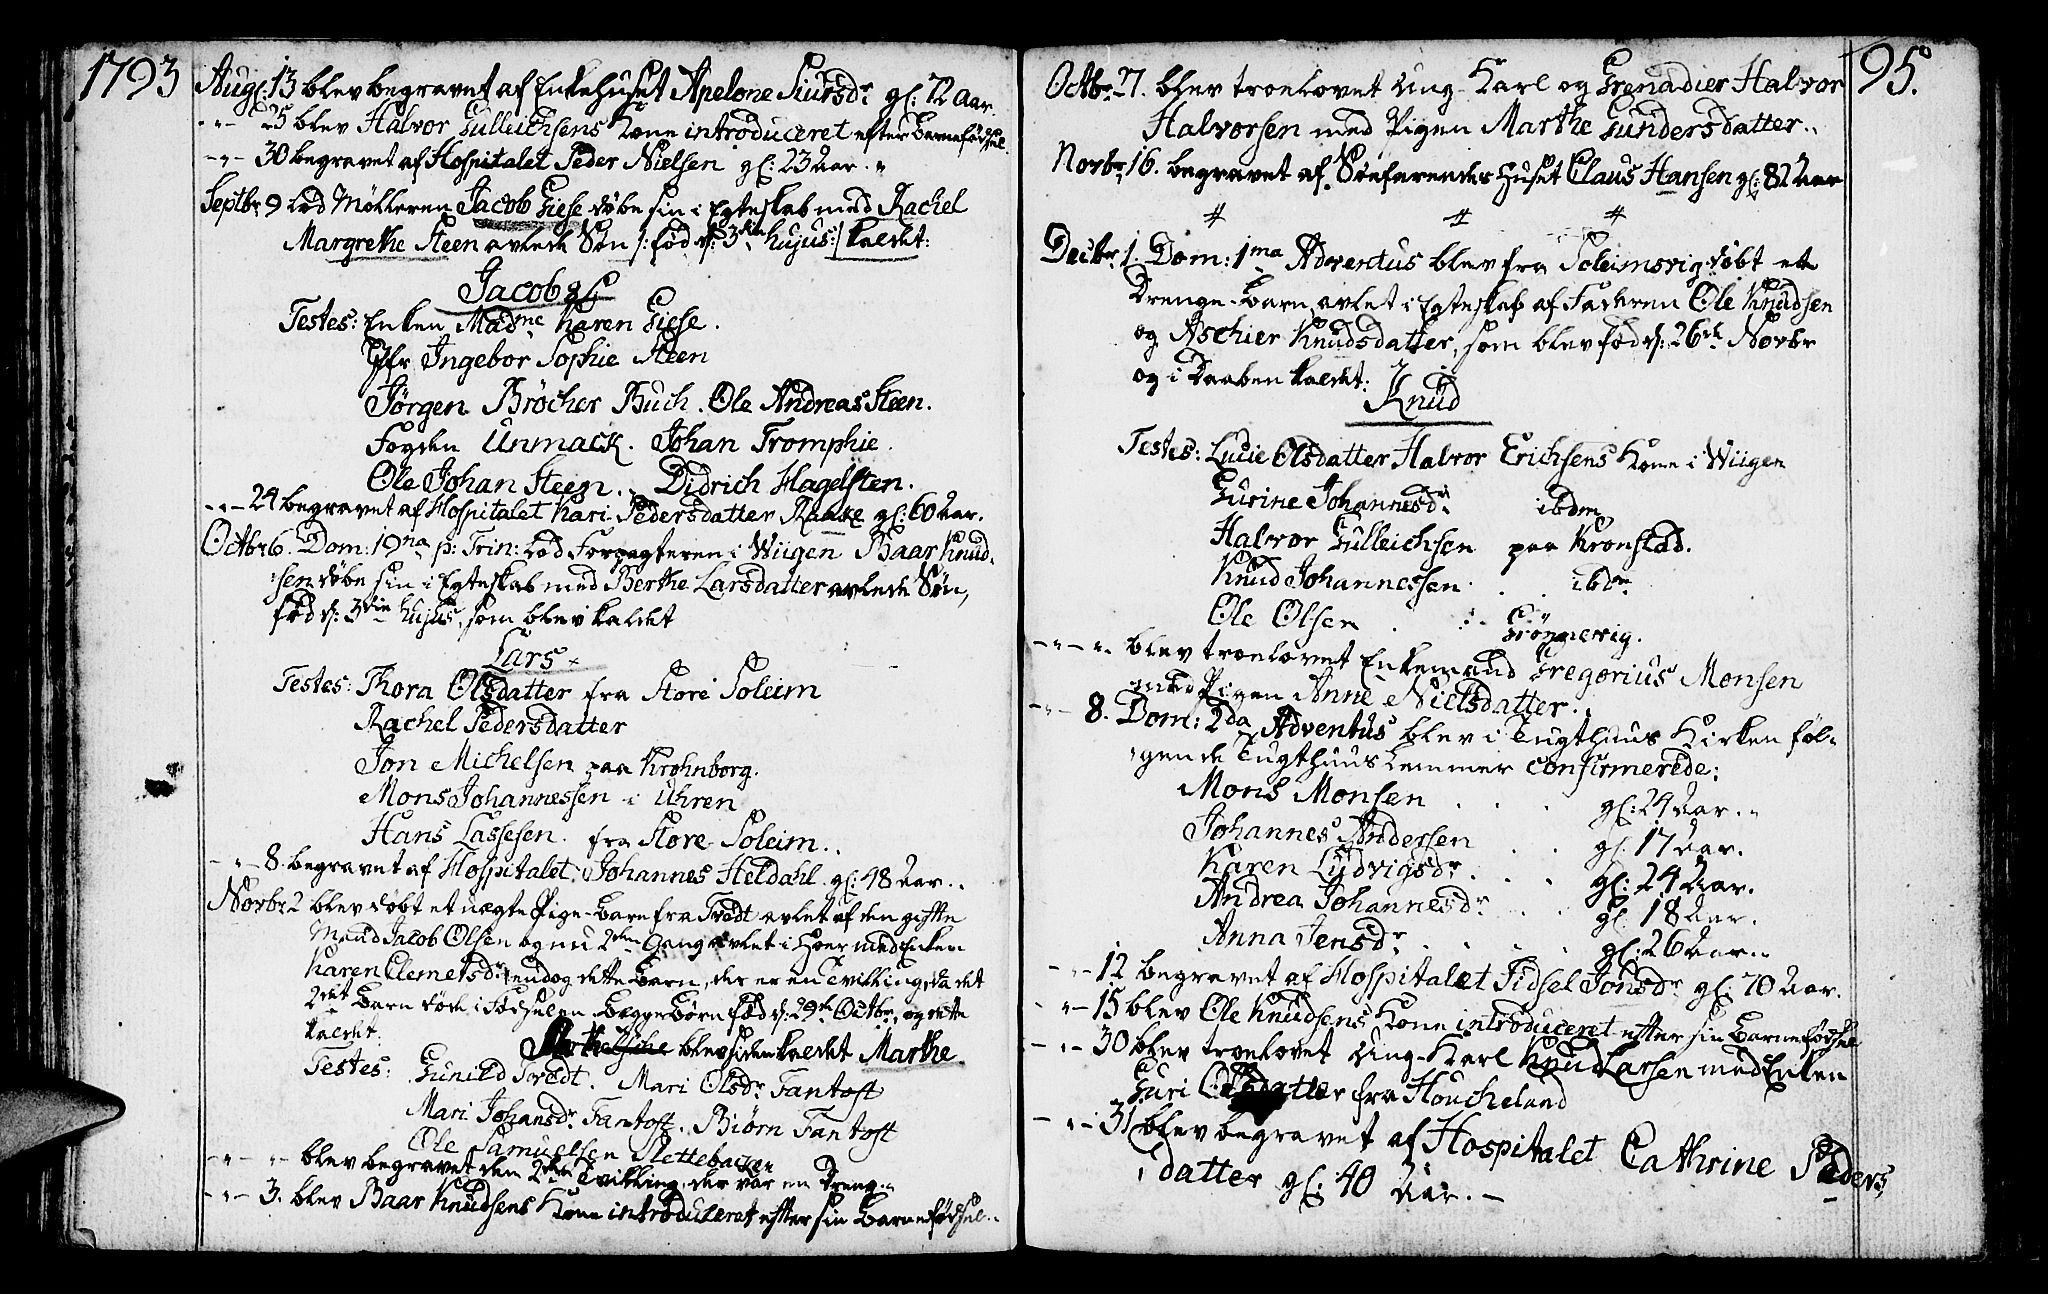 1793
Aug: 13 blev begravet af Enkehuset Apelone Siursdr gl: 72 Aar.
-"- 25 blev Halvor Gulleichsens Kone introduceret efter Barnefødsel.
-"- 30 begravet af Hospitalet Peder Nielsen gl: 23 Aar."
Septbr 9 lod Mølleren Jacob Giese døbe sin i Egteskab med Rachel
Margrethe Steen avlede Søn /: fød d: 3die hujus :/ kaldet:
Jacob
Testes: Enken Madme Karen Giese.
Jfr Ingebor Sophie Steen
Jørgen Brøcher Buch. Ole Andreas Steen.
Fogden Unmack. Johan Tromphie.
Ole Johan Steen. Didrich Hagelsten.
-"- 24 begravet af Hospitalet Kari Pedersdatter Raake gl: 60 Aar.
Octbr 6. Dom: 19na p: Trin: lod Forpagteren i Wiigen Baar Knud-
sen døbe sin i Egteskab med Berthe Larsdatter avlede Søn,
fød d: 3die hujus, som blev kaldet
Lars
Testes: Thora Olsdatter fra Store Soleim
Rachel Pedersdatter
Jon Michelsen paa Krohnborg.
Mons Johannessen i Uhren
Hans Lassesen. fra Store Soleim..
-"- 8. begravet af Hospitalet: Johannes Heldahl gl: 48 Aar..
Novbr 2 blev døbt et uægte Pige-Barn fra Tvedt avlet af den gifte
Mand Jacob Olsen og nu 2den Gang avlet i Hoer med Enken
Karen Clemetsdr: endog dette Barn, der er en Tvilling, da det
2det Barn døde i Fødselen begge Børn fød d: 29de Octbr, og dette
kaldet:
blev siden kaldet Marthe
Testes: Gunild Tvedt. Mari Olsdr Fantoft
Mari Johansdr Fantoft. Biørn Fantoft
Ole Samuelsen Slettebacken
-"- "- blev begravet den 2den Tvilling, der var en Dreng."
-"- 3. blev Baar Knudsens Kone introduceret efter sin Barnefødsel..
95.
Octbr 27. blev troelovet Ung-Karl og Grenadier Halvor
Halvorsen med Pigen Marthe Gundersdatter..
Novbr 16. begravet af Søefarendes Huset Claus Hansen gl: 82 Aar
# # #
Decbr 1. Dom: 1ma Adventus blev fra Soleimsvig døbt et
Drenge-Barn avlet i Egteskab af Faderen Ole Knudsen
og Aschier Knudsdatter, som blev fød d: 26de Novbr
og i Daaben kaldet:
Knud
Testes: Lucie Olsdatter Halvor Erichsens Kone i Wiigen
Gurine Johannesdr ibdm
Halvor Gulleichsen paa Kronstad.
Knud Johannessen . . ibdm
Ole Olsen . :. Grønnevig.
-"-"- blev troelovet Enkemand Gregorius Monsen
med Pigen Anne Nielsdatter..
-"- 8. Dom: 2da Adventus blev i Tugthuus Kirken føl-
gende Tugthuus Lemmer confirmerede:
Mons Monsen . . . gl: 24 Aar."
Johannes Andersen . . gl: 17 Aar.
Karen Ludvigsdr . . . gl: 24 Aar.
Andrea Johannesdr . . gl: 18 Aar.
Anna Jensdr . . . . gl: 26 Aar..
-"- 12 begravet af Hospitalet Sidsel Jonsdr gl: 70 Aar.
-"- 15 blev Ole Knudsens Kone introduceret efter sin Barnefødsel
-"- 30 blev troelovet Ung-Karl Knud Larsen med Enken
Guri Olsdatter fra Houcheland
-"- 31 blev begravet af Hospitalet Cathrine Peders-
datter gl: 40 Aar. -